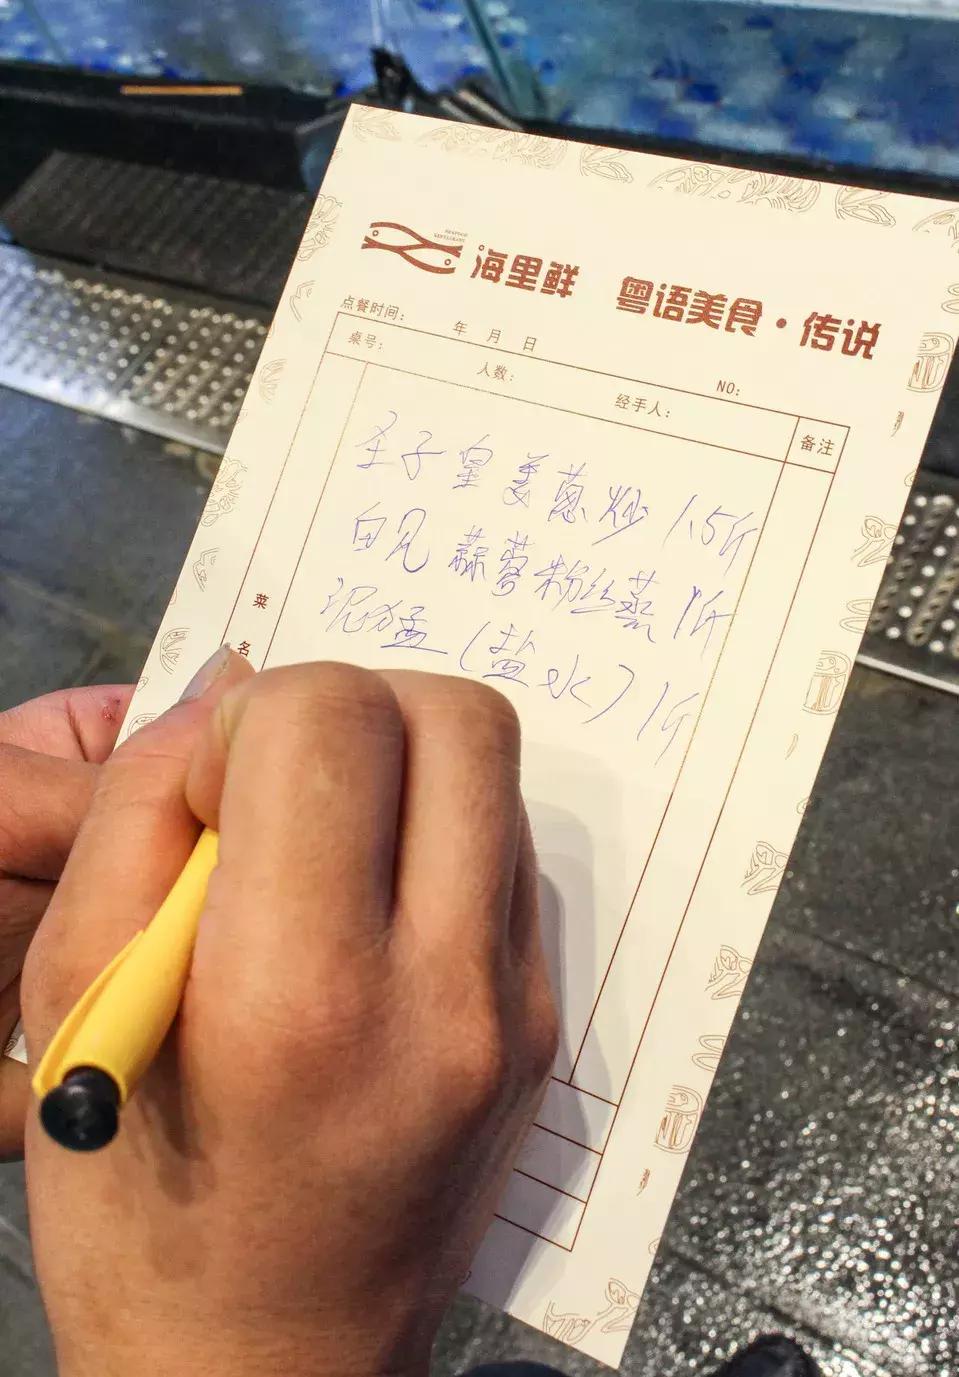 SEAFOOD
RESTAURANT
海里鲜 粤语美食·传说
点餐时间: 年 月 日 NO:
桌号: 人数: 经手人: 备注
王子皇 姜葱炒 1.5斤
白贝 蒜蓉粉丝蒸 1斤
泥猛 (盐水) 1斤
菜
名